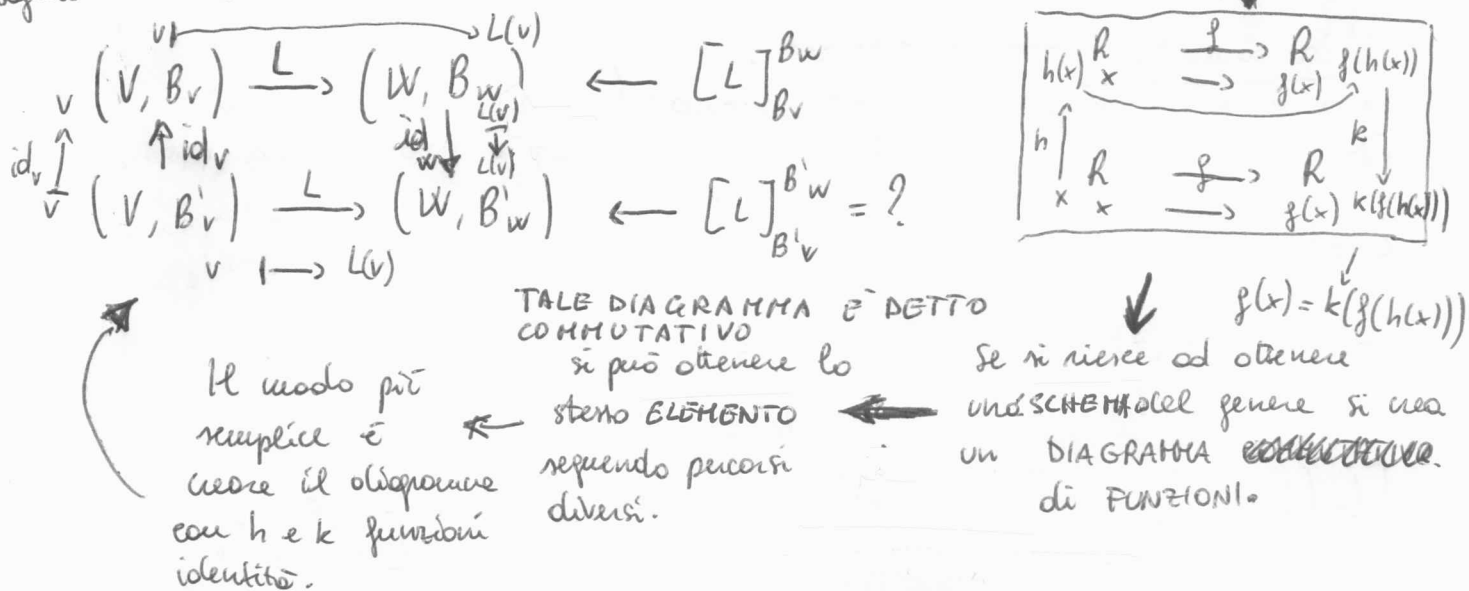 v ↦ L(v)
(V, B_v) —L→ (W, B_w) ← [L]^{B_w}_{B_v}
v
id_v ↑ id_v
id_w ↓ L(v) ↧ L(v)
v
(V, B'_v) —L→ (W, B'_w) ← [L]^{B'_w}_{B'_v} = ?
v ↦ L(v)
h(x) R —f→ R f(h(x))
x → f(x)
h ↑ k ↓
R —f→ R
x x → f(x) k(f(h(x)))
f(x) = k(f(h(x)))
Se si riesce ad ottenere
uno SCHEMA del genere si crea
un DIAGRAMMA
di FUNZIONI.
TALE DIAGRAMMA È DETTO
COMMUTATIVO
si può ottenere lo
stesso ELEMENTO
seguendo percorsi
diversi.
Il modo più
semplice è
creare il diagramma
con h e k funzioni
identità.